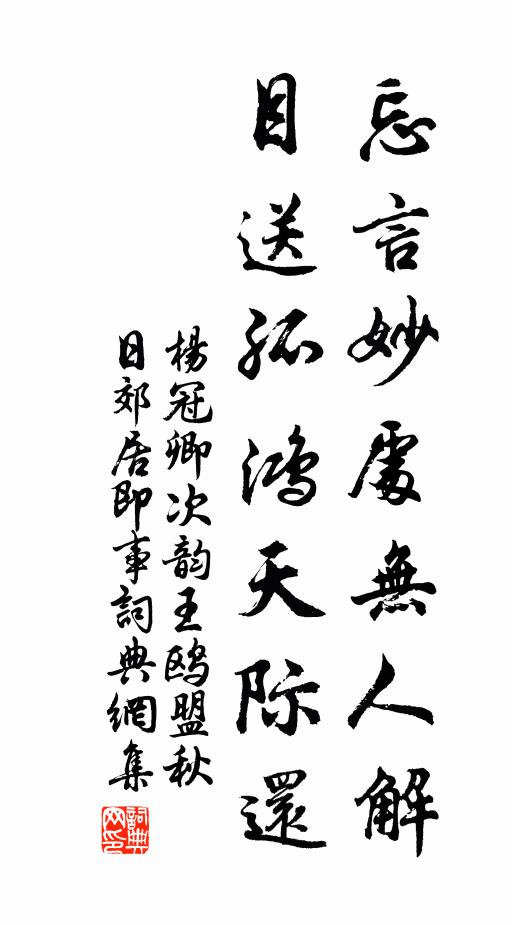 忘言妙處無人解
目送孤鴻天际還
楊冠卿次韵王鸥盟秋
日郊居即事詞典網集
詞典
网印